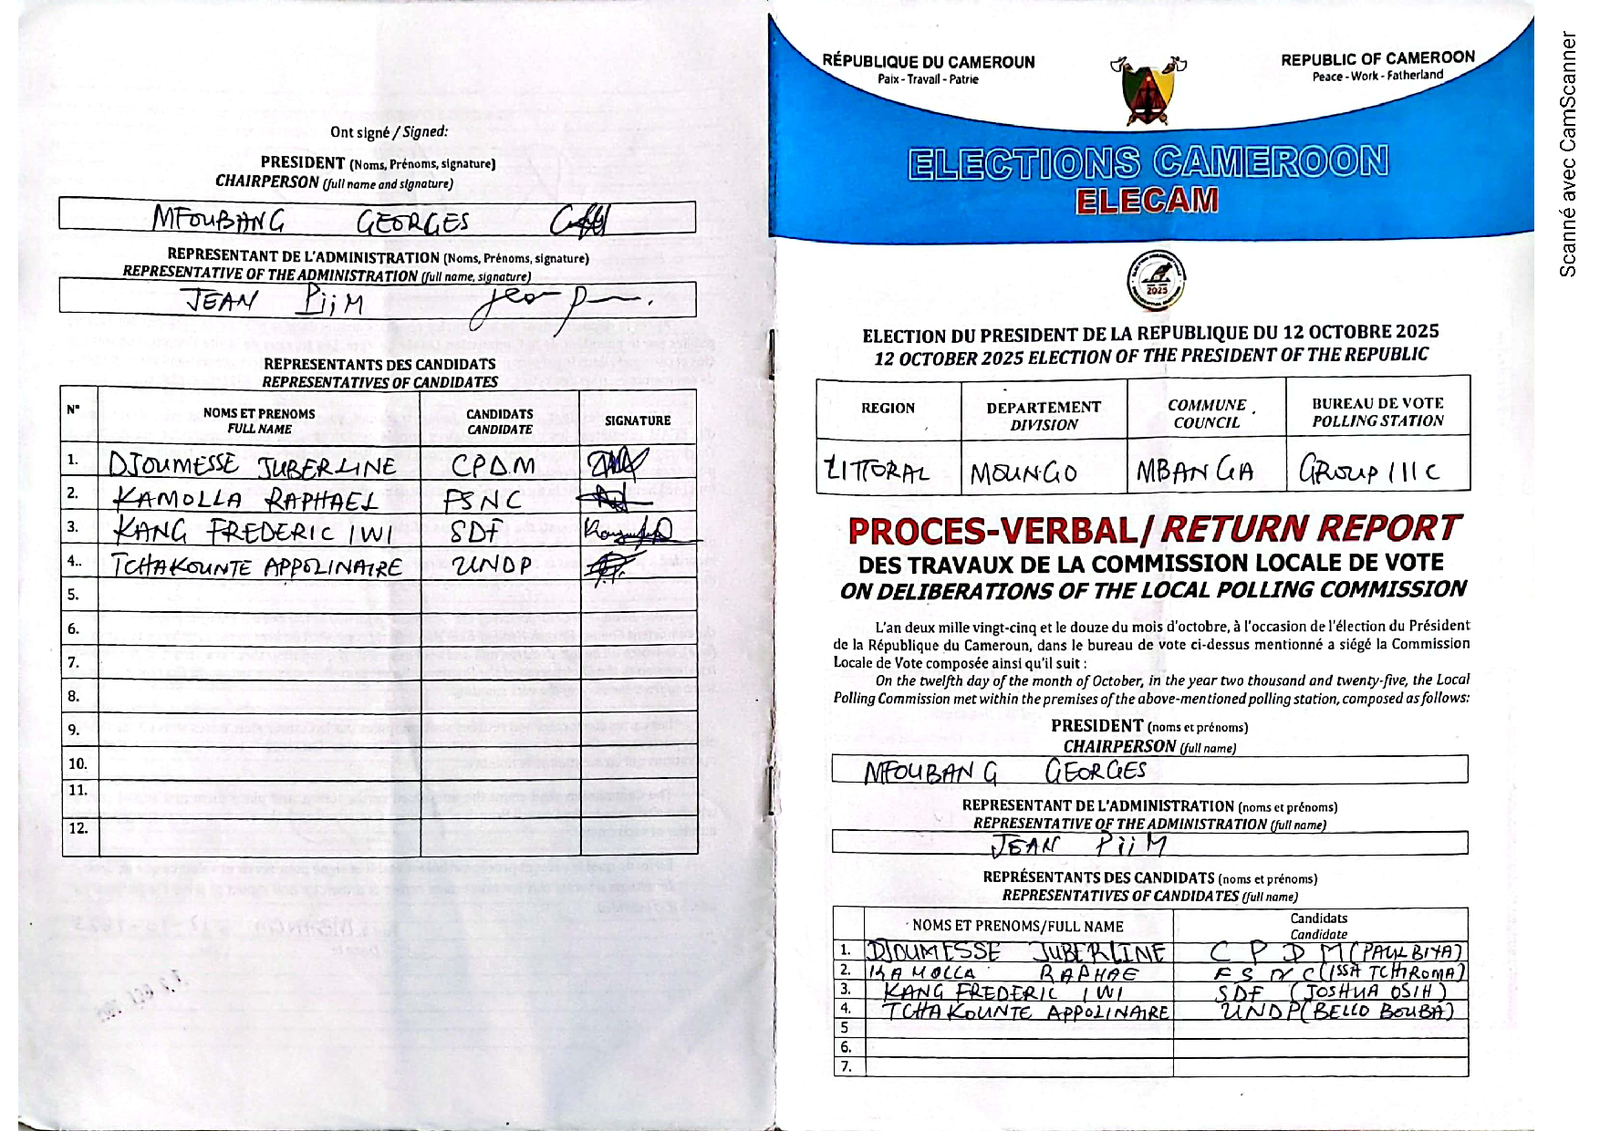 Ont signé / Signed:
PRESIDENT (Noms, Prénoms, signature)
CHAIRPERSON (full name and signature)
MFOUBANG GEORGES
REPRESENTANT DE L'ADMINISTRATION (Noms, Prénoms, signature)
REPRESENTATIVE OF THE ADMINISTRATION (full name, signature)
JEAN PiiM
REPRESENTANTS DES CANDIDATS
REPRESENTATIVES OF CANDIDATES
N° NOMS ET PRENOMS FULL NAME CANDIDATS CANDIDATE SIGNATURE
1. DJOUMESSE JUBERLINE CPDM
2. KAMOLLA RAPHAEL FSNC
3. KANG FREDERIC IWI SDF
4.. TCHAKOUNTE APPOLINAIRE UNDP
5.
6.
7.
8.
9.
10.
11.
12.
RÉPUBLIQUE DU CAMEROUN
Paix - Travail - Patrie
REPUBLIC OF CAMEROON
Peace - Work - Fatherland
ELECTIONS CAMEROON
ELECAM
2025
ELECTION DU PRESIDENT DE LA REPUBLIQUE DU 12 OCTOBRE 2025
12 OCTOBER 2025 ELECTION OF THE PRESIDENT OF THE REPUBLIC
REGION DEPARTEMENT DIVISION COMMUNE COUNCIL BUREAU DE VOTE POLLING STATION
LITTORAL MOUNGO MBANGA GROUP III C
PROCES-VERBAL/RETURN REPORT
DES TRAVAUX DE LA COMMISSION LOCALE DE VOTE
ON DELIBERATIONS OF THE LOCAL POLLING COMMISSION
L'an deux mille vingt-cinq et le douze du mois d'octobre, à l'occasion de l'élection du Président
de la République du Cameroun, dans le bureau de vote ci-dessus mentionné a siégé la Commission
Locale de Vote composée ainsi qu'il suit :
On the twelfth day of the month of October, in the year two thousand and twenty-five, the Local
Polling Commission met within the premises of the above-mentioned polling station, composed as follows:
PRESIDENT (noms et prénoms)
CHAIRPERSON (full name)
MFOUBANG GEORGES
REPRESENTANT DE L'ADMINISTRATION (noms et prénoms)
REPRESENTATIVE OF THE ADMINISTRATION (full name)
JEAN PiiM
REPRÉSENTANTS DES CANDIDATS (noms et prénoms)
REPRESENTATIVES OF CANDIDATES (full name)
NOMS ET PRENOMS/FULL NAME Candidats Candidate
1. DJOUMESSE JUBERLINE CPDM (PAUL BIYA)
2. KAMOLLA RAPHAE FSNC (ISSA TCHIROMA)
3. KANG FREDERIC IWI SDF (JOSHUA OSIH)
4. TCHAKOUNTE APPOLINAIRE UNDP (BELLO BOUBA)
5
6.
7.
Scanné avec CamScanner